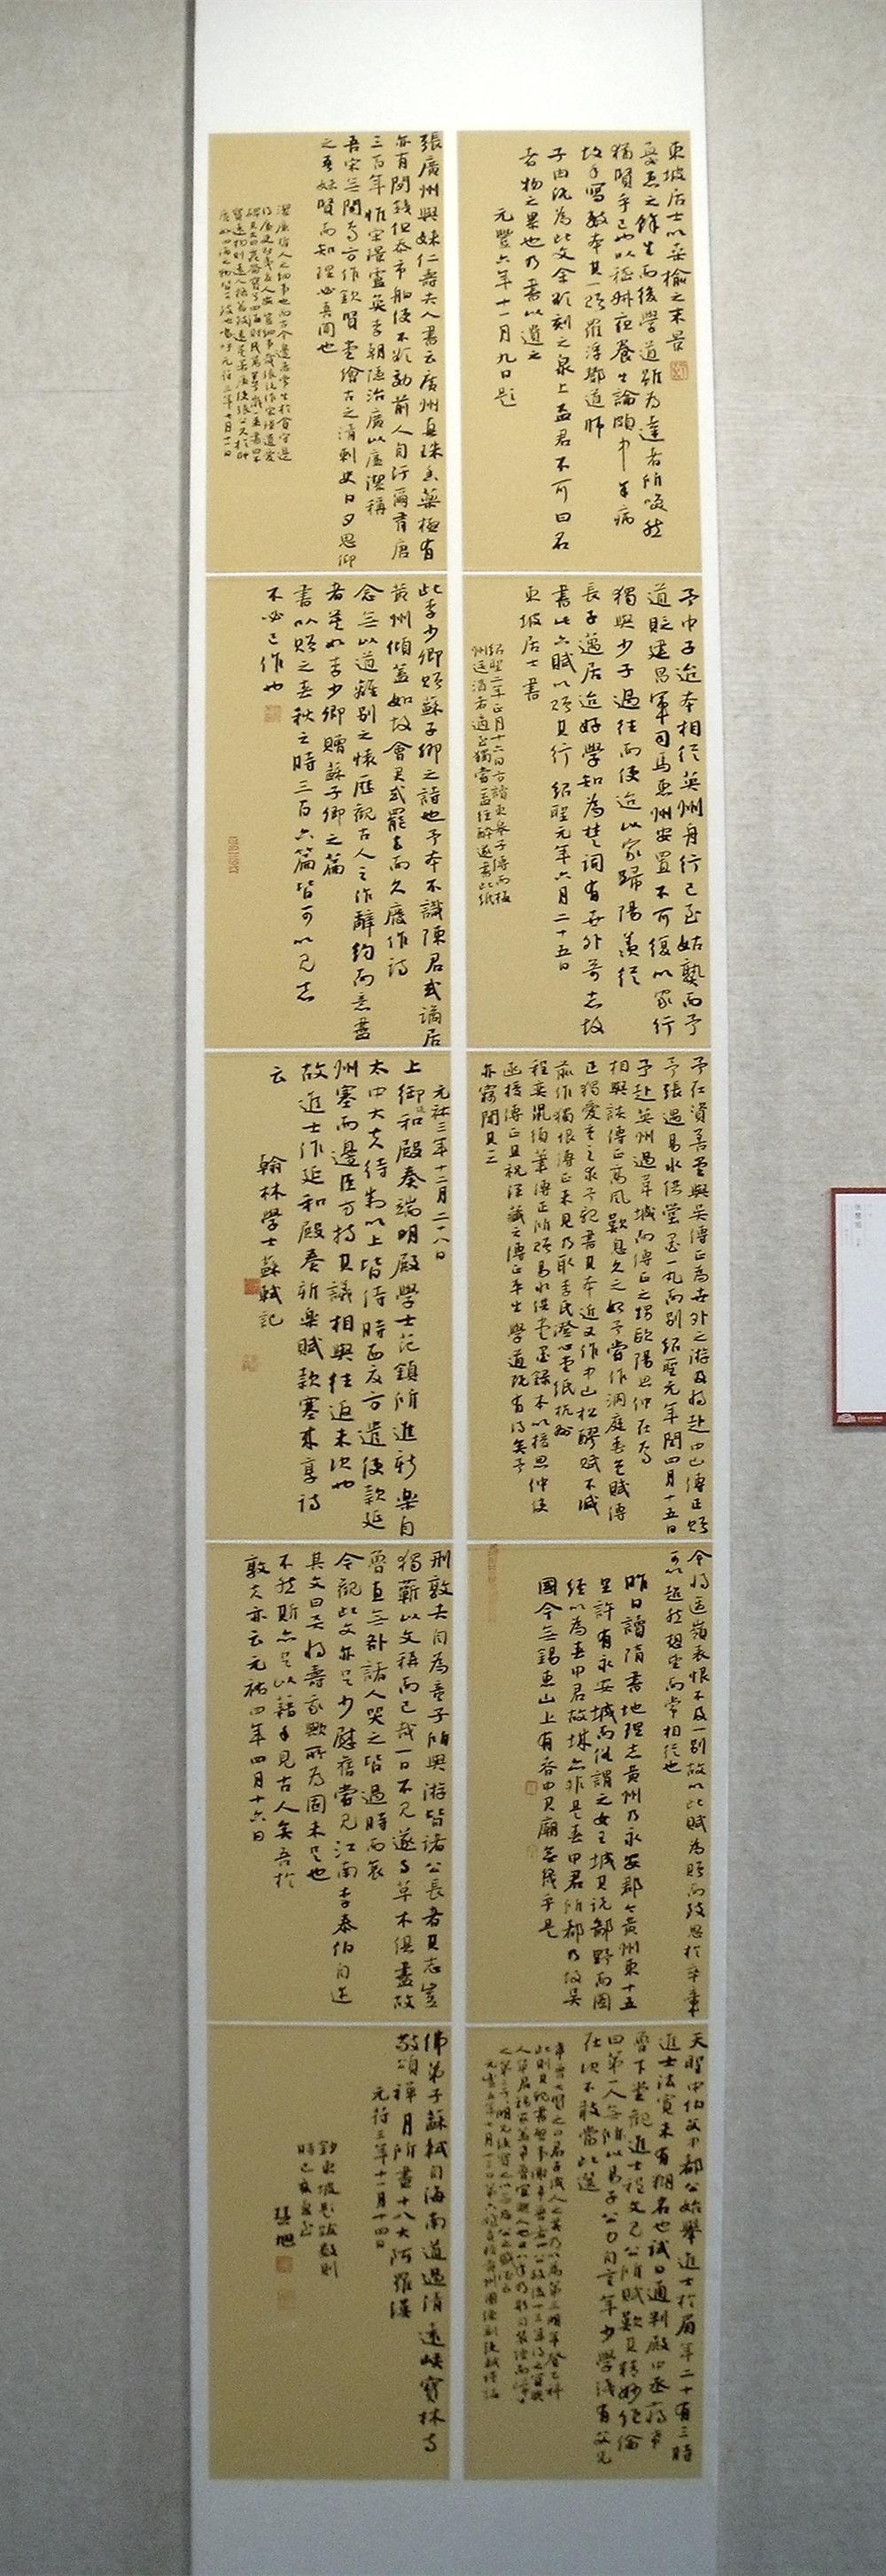 東坡居士以桑榆之末景
憂患之餘生而後學道雖為達者所哂然
猶賢乎已也以嵇叔夜養生論頗中余病
故手寫數本其一贈羅浮鄧道師
子由既為此文余欲刻之泉上孟君不可曰名
者物之累也乃書以遺之
元豐六年十一月九日題
予中子迨本相從英州舟行已至姑孰而予
道貶建昌軍司馬惠州安置不可復以家行
獨與少子過往而使迨以家歸陽羨從
長子邁居迨好學知為楚詞有世外奇志故
書此六賦以贈其行 紹聖元年六月二十五日
東坡居士書
予在資善堂與吳傅正為世外之游及將赴中山傅正贈
予張遇易水供堂墨一丸而別紹聖元年閏四月十五日
予赴英州過韋城而傅正之甥歐陽思仲在焉
相與談傅正高風歎息久之始予嘗作洞庭春色賦傅
正獨愛重之求予親書其本近又作中山松醪賦不減
前作獨恨傅正未見乃取李氏澄心堂紙杭州
程奕鼠須筆傅正所贈易水供堂墨錄本以授思仲使
面授傅正且祝深藏之傅正平生學道既有得矣予
亦竊聞其一二
今將適嶺表恨不及一別故以此賦為贈而致思於卒章
可以超然想望而常相從也
昨日讀隋書地理志黃州乃永安郡今黃州東十五
里許有永安城而俗謂之女王城其說鄙野而圖
經以為春申君故城亦非是春申君所都乃故吳
國今無錫惠山上有春申君廟庶幾乎是
天聖中伯父中都公始舉進士於眉年二十有三時
進士法寬未有糊名也試日通判殿中丞蔣希
魯下堂觀進士程文見公所賦歎其精妙絕倫
曰第一人無所以易子公曰自童年少學淺有父兄
在決不敢當此選
張廣州與妹仁壽夫人書云廣州真珠香藥極有
亦有閒錢但忝市舶使不欲效前人自污爾有唐
三百年惟宋璟盧奐李朝隱治廣以廉潔稱
吾宋無聞焉方作欽賢堂繪古之清刺史日夕思仰
之吾妹賢而知理必喜聞也
此李少卿贈蘇子卿之詩也予本不識陳君式謫居
黃州傾蓋如故會君式罷去而久廢作詩
念無以道離別之懷歷觀古人之作辭約而意盡
者莫如李少卿贈蘇子卿之篇
書以贈之春秋之時三百六篇皆可以見志
不必己作也
元祐三年十二月二十八日
上御延和殿奏端明殿學士范鎮所進新樂自
太中大夫待制以上皆侍時西夏方遣使款延
州塞而邊臣方持其議相與往返未決也
故進士作延和殿奏新樂賦款塞來享詩
云
翰林學士蘇軾記
刑敦夫自為童子所與游皆諸公長者其志豈
獨蘄以文稱而已哉一日不見遂與草木俱盡故
魯直無咎諸人哭之皆過時而哀
今觀此文亦足少慰舊嘗見江南李泰伯自述
其文曰天將壽我歟所為固未足也
不然斯亦足以藉手見古人矣吾於
敦夫亦云元祐四年四月十六日
佛弟子蘇軾自海南道過清遠峽寶林寺
敬頌禪月所畫十八大阿羅漢
元符三年十一月十四日
鈔東坡題跋數則